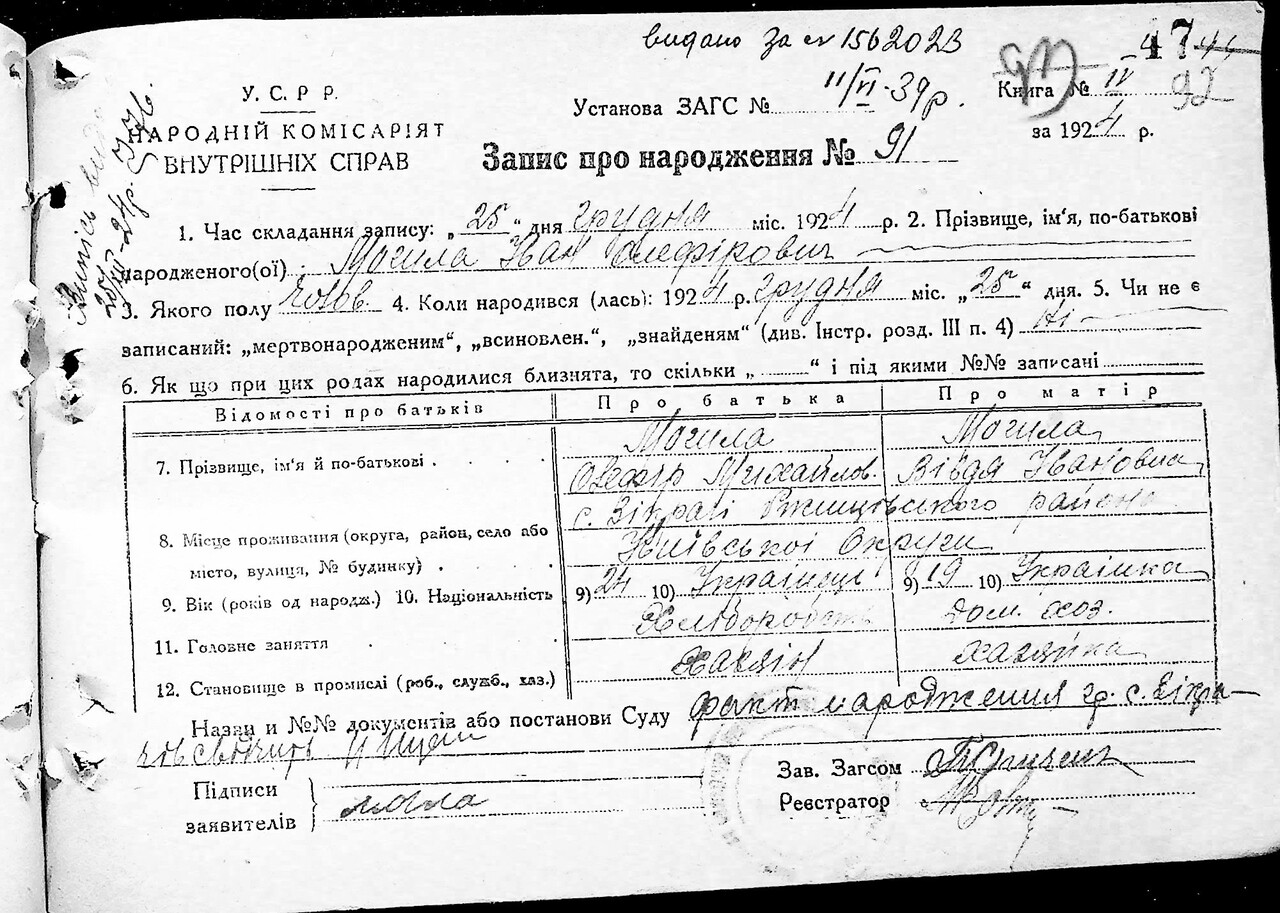 видано за № 1562023
11/VI-39р.
47
У. С. Р. Р.
НАРОДНІЙ КОМІСАРІЯТ
ВНУТРІШНІХ СПРАВ
Установа ЗАГС №
Книга № IV
92
за 1924 р.
Запис про народження № 91
1. Час складання запису: „25“ дня грудня міс. 1924 р. 2. Прізвище, ім'я, по-батькові
народженого(ої) Могила Іван Олефірович
3. Якого полу чолов. 4. Коли народився (лась): 1924 р. грудня міс. „25“ дня. 5. Чи не є
записаний: „мертвонародженим“, „всиновлен.“, „знайденям“ (див. Інстр. розд. III п. 4) Ні
6. Як що при цих родах народилися близнята, то скільки „ “ і під якими №№ записані
Відомості про батьків Про батька Про матір
7. Прізвище, ім'я й по-батькові
Могила Могила
Олефір Михайлов. Вівдя Івановна
8. Місце проживання (округа, район, село або
місто, вулиця, № будинку)
с. Зікраті Ржищівського района
Київської Округи
9. Вік (років од народж.) 10. Національність 9) 24 10) Українець 9) 19 10) Українка
11. Головне заняття Хліборобств дом. хоз.
12. Становище в промислі (роб., служб., хаз.) Хазяін хазяйка
Назви и №№ документів або постанови Суду факт народження гр. с. Зікра-
Підписи
заявителів
Могила
Зав. Загсом
Реєстратор